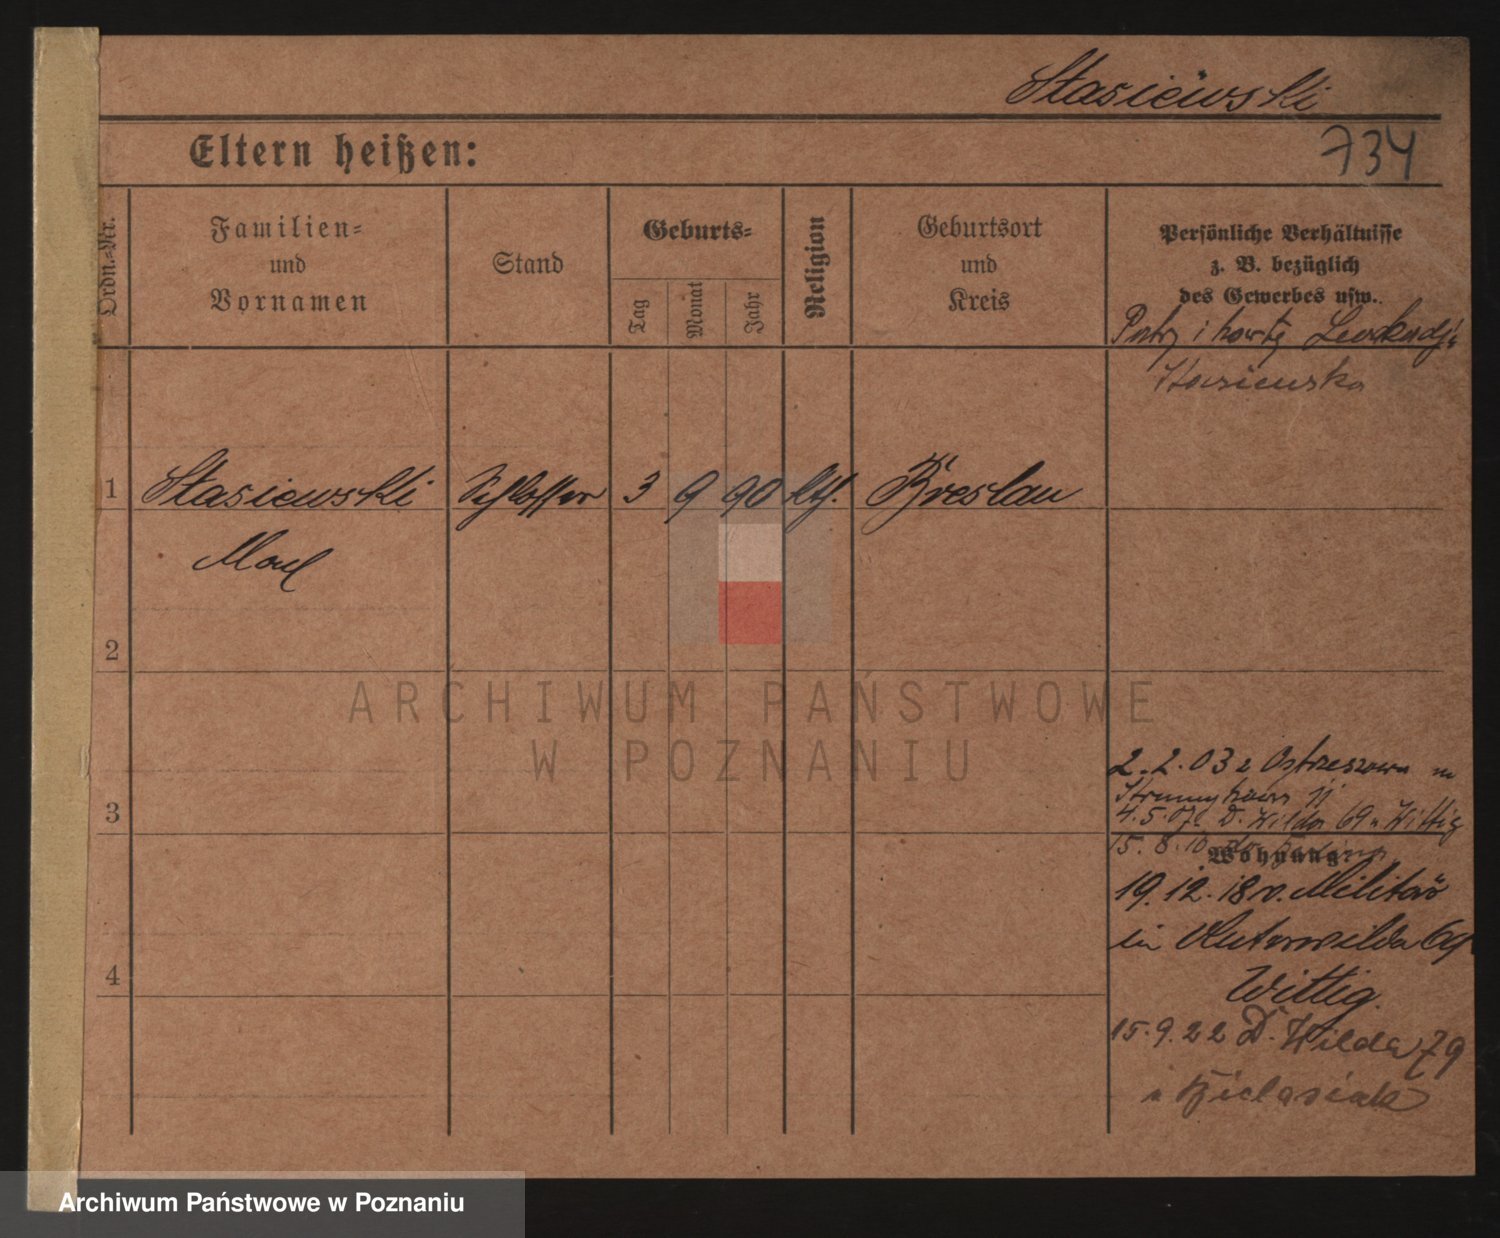 Stasiewski
Eltern heißen:
734
Ordn.-Nr.
Familien=
und
Vornamen
Stand
Geburts=
Tag
Monat
Jahr
Religion
Geburtsort
und
Kreis
Persönliche Verhältnisse
z. B. bezüglich
des Gewerbes usw.
Patrz i kartę Leokadji
Stasiewska
1 Stasiewski Schlosser 3 9 90 kth. Breslau
2
3
4
ARCHIWUM PAŃSTWOWE
W POZNANIU
2.2.03 z Ostrzeszowa
4.5.07 D. Wilda 69 Wittig
15.8.10
Wohnung
19.12.18 v. Militär
in Unterwilda 69
Wittig
15.9.22 D. Wilda 79
Archiwum Państwowe w Poznaniu